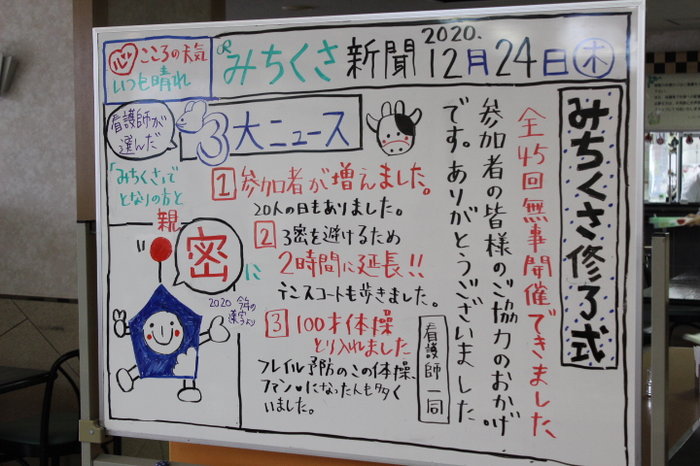 心 こころの天気
いつも晴れ
みちくさ新聞 2020. 12月24日(木)
みちくさ修了式
全45回無事開催できました、
参加者の皆様のご協力のおかげ
です。ありがとうございました
看護師一同
看護師が
選んだ
3大ニュース
1 参加者が増えました。
20人の日もありました。
2 3密を避けるため
2時間に延長!!
テニスコートも歩きました。
3 100才体操
とり入れました
フレイル予防のこの体操、
ファン♥になった人も多く
いました。
「みちくさ」で
となりの方と
親
密
に
2020 今年の
漢字